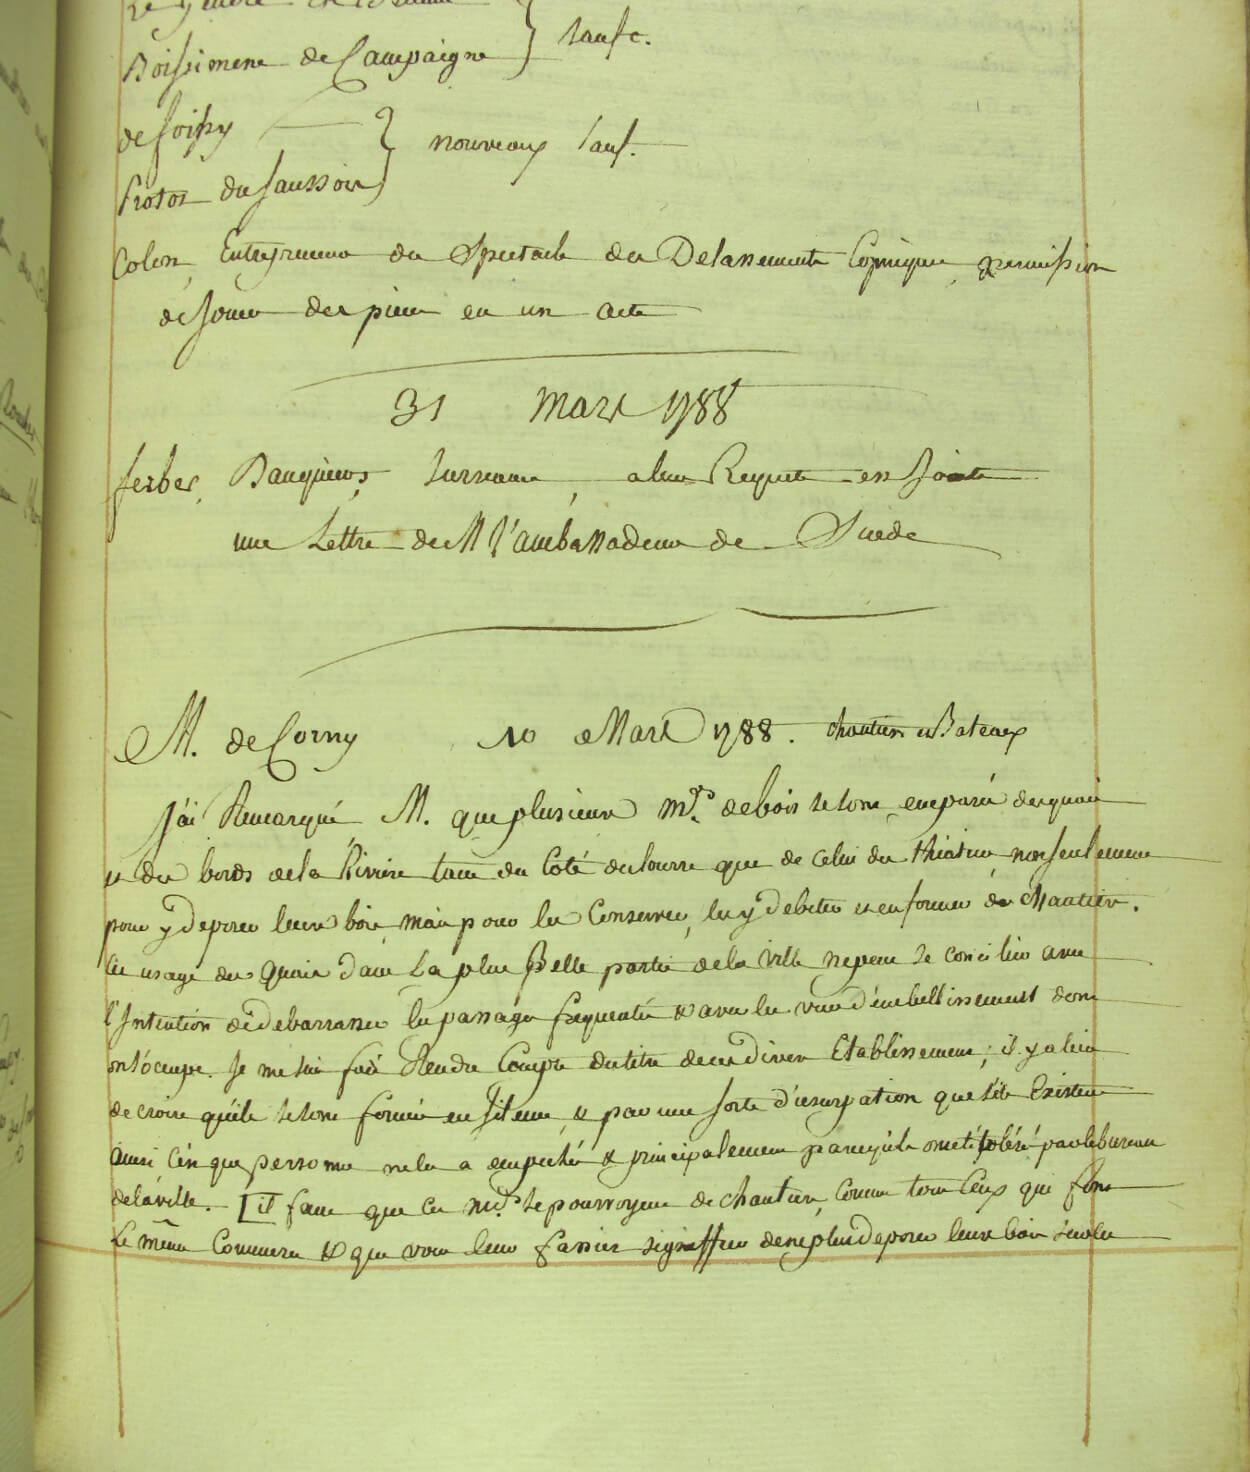 Boissimene de Campaigne } Saufc.
de Soissy } nouveaux Sauf.
Protot du Saussoir
Colon, Entrepreneur du Spectacle des Delassements Comiques, permission
de Jouer des pieces en un acte
31 Mars 1788
ferber, Banquiers, Surseance, a leur Requete est Jointe
une Lettre de M l'ambassadeur de Suède
M. de Corny 10 Mars 1788. chantiers et Bateaux
J'ai Remarqué M. que plusieurs mds. de bois se sont emparés des quais
et des bords de la Riviere tant du Coté du Louvre que de celui des théatins non seulement
pour y deposer leurs bois, mais pour les Conserver, les y debiter et en former des Chantiers.
cet usage des quais dans La plus Belle partie de la Ville ne peut se concilier avec
l'Intention de debarrasser les passages frequentés & avec les vues d'embellissement dont
on s'occupe. Je me suis fait Rendre Compte du titre de ces divers Etablissements; il y a lieu
de croire qu'ils se sont formés en silence, & par une sorte d'usurpation, que s'ils Existent
ainsi c'est que personne ne les a empechés & principalement parcequ'ils ont été tolérés par le bureau
de la ville. [il faut que ces mds. se pourvoyent de chantiers, Comme tous Ceux qui font
Le même Commerce & que vous leur fassiez signiffier de ne plus deposer leurs bois sur les